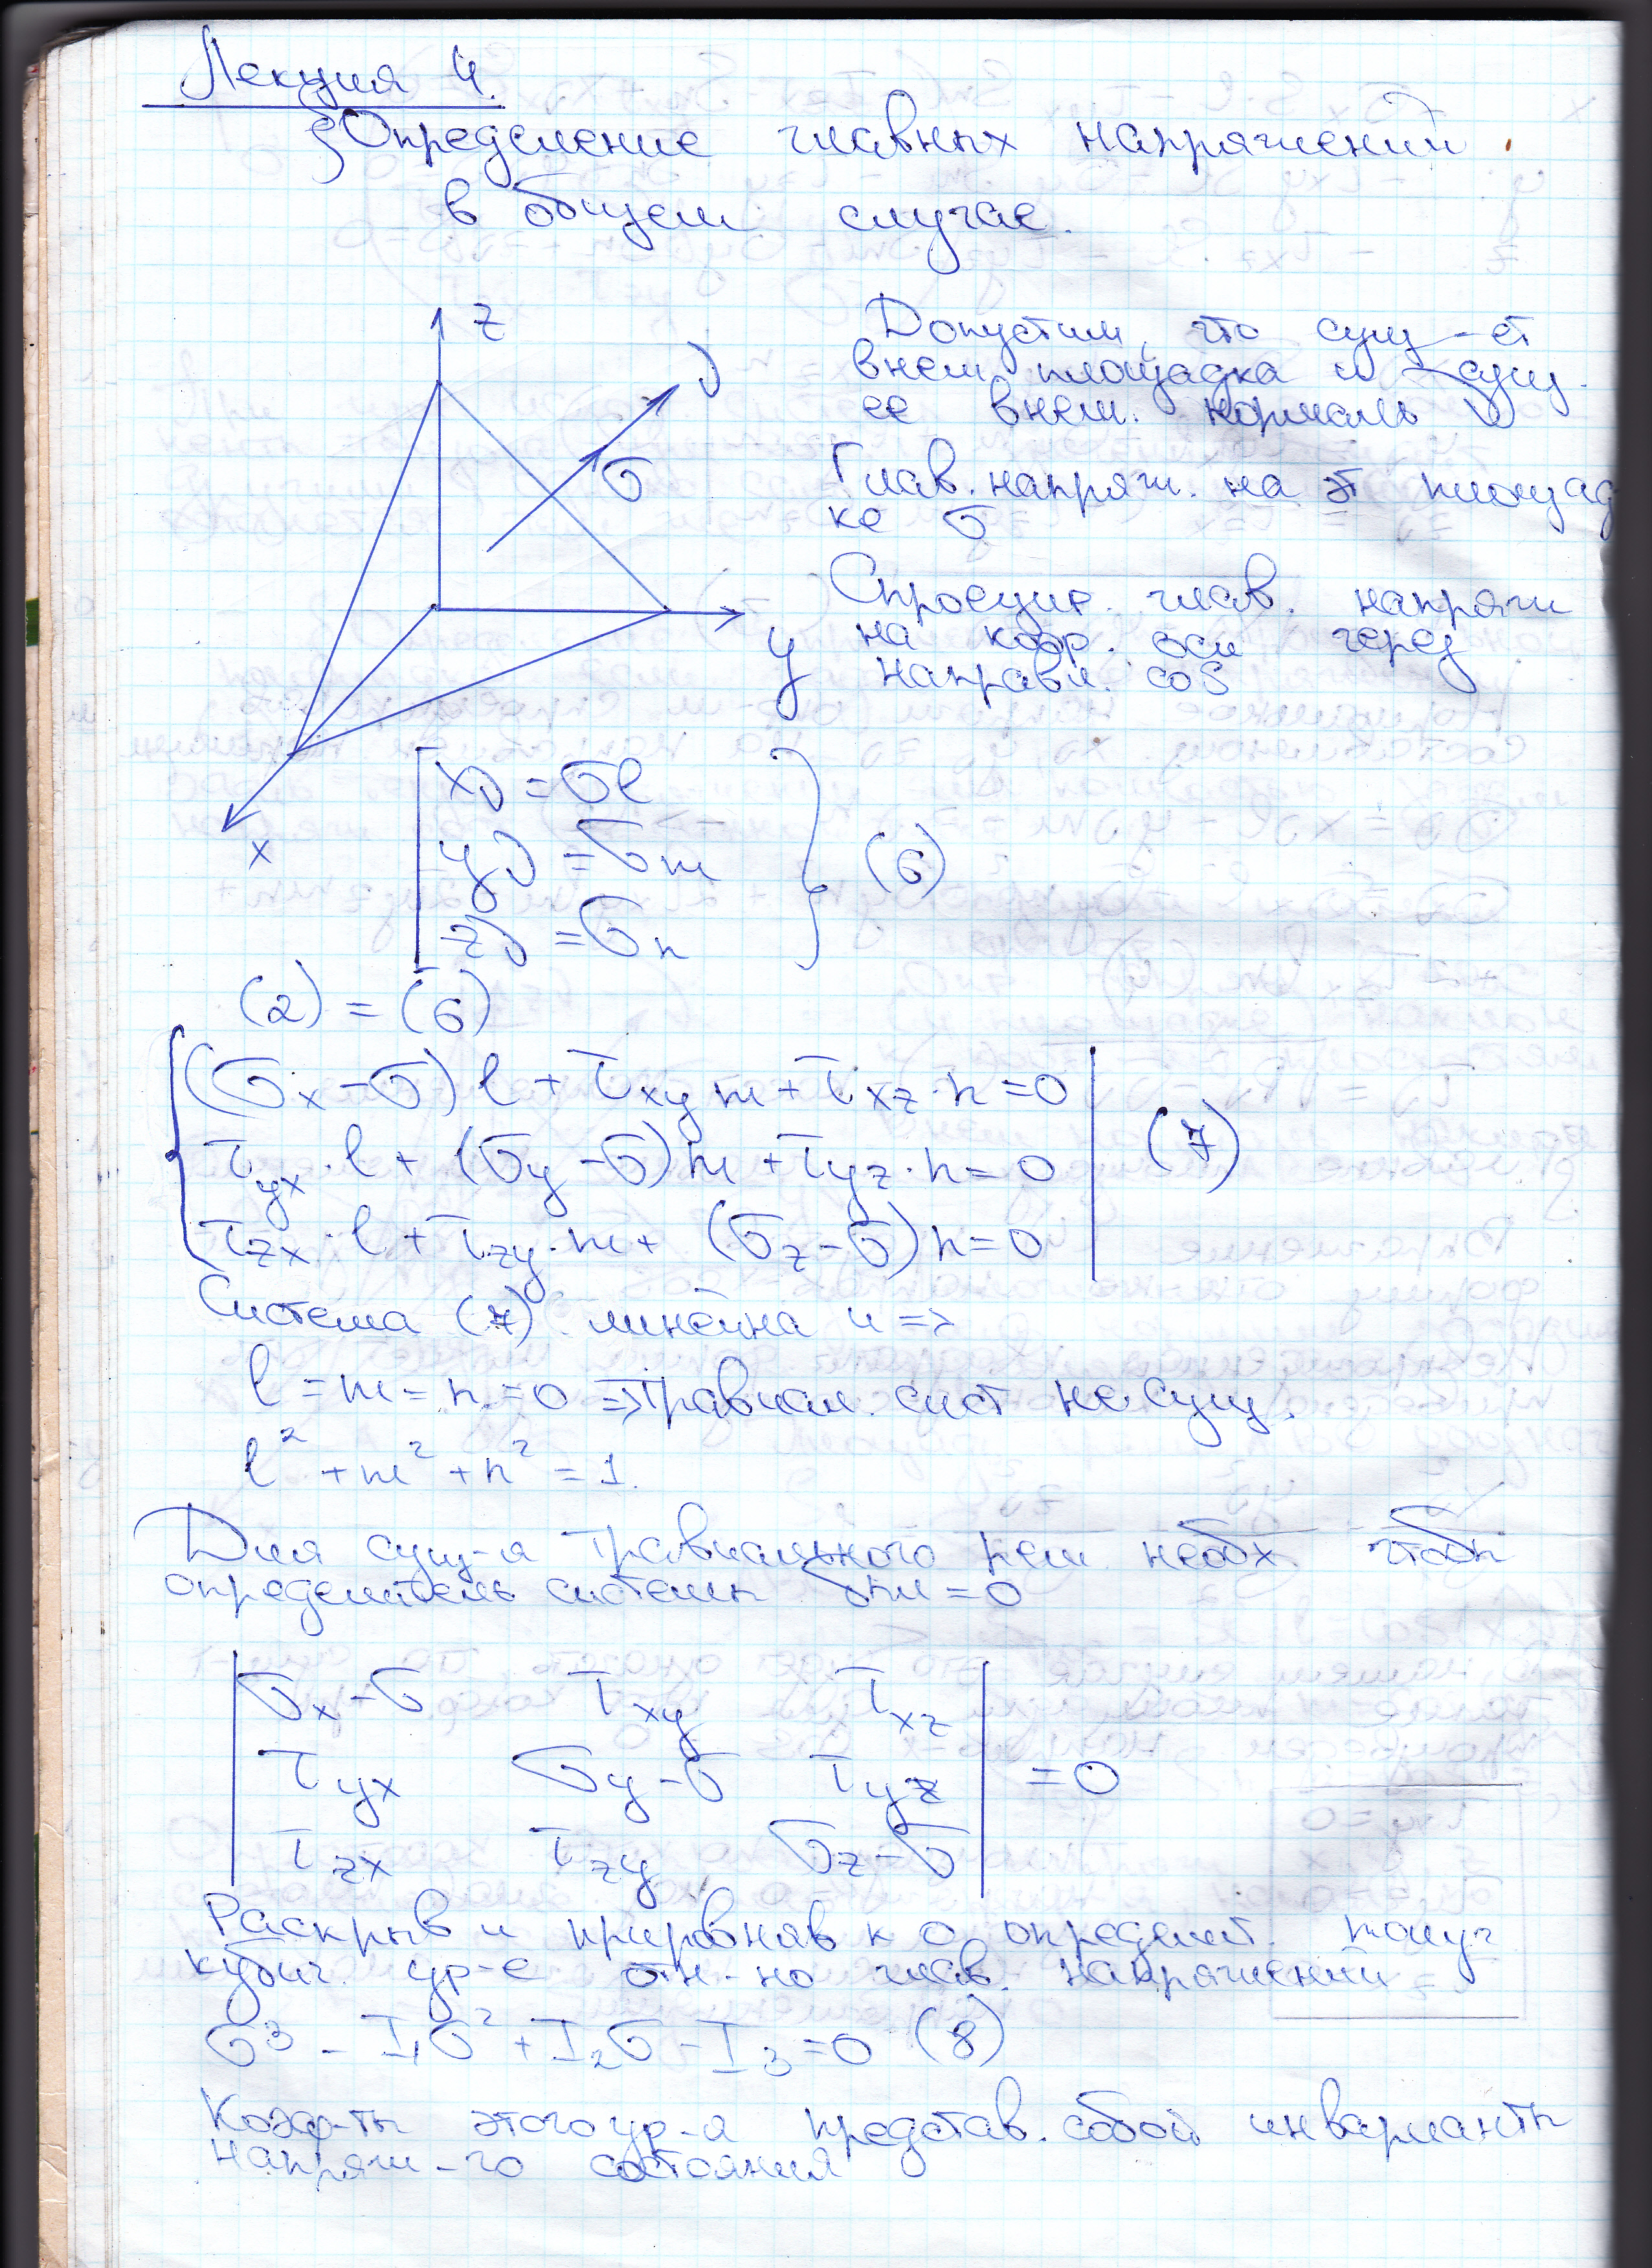 Лекция 4.
§ Определение главных напряжений
в общем случае.
z
Допустим, что сущ-ет
внеш. площадка и сущ.
ее внеш. нормаль ν
ν
σ
Глав. напряж. на эт площад
ке σ
Спроецир. глав. напряж
на коор. оси через
направл. cos
y
x
xν = σl
yν = σm
zν = σn
(6)
(2) = (6)
(σx - σ) l + τxy m + τxz · n = 0
τyx · l + (σy - σ) m + τyz · n = 0
(7)
τzx · l + τzy · m + (σz - σ) n = 0
Система (7) линейна и =>
l = m = n = 0 => травиал. сист не сущ.
l² + m² + n² = 1.
Для сущ-я травиального реш. необх. чтобы
определитель системы = 0
σx - σ τxy τxz
τyx σy - σ τyz = 0
τzx τzy σz - σ
Раскрыв и приравняв к 0 определит. получ
кубич. ур-е отн-но глав. напряжений
σ³ - I₁σ² + I₂σ - I₃ = 0 (8)
Коэф-ты этого ур-я представ. собой инварианты
напряж-го состояния